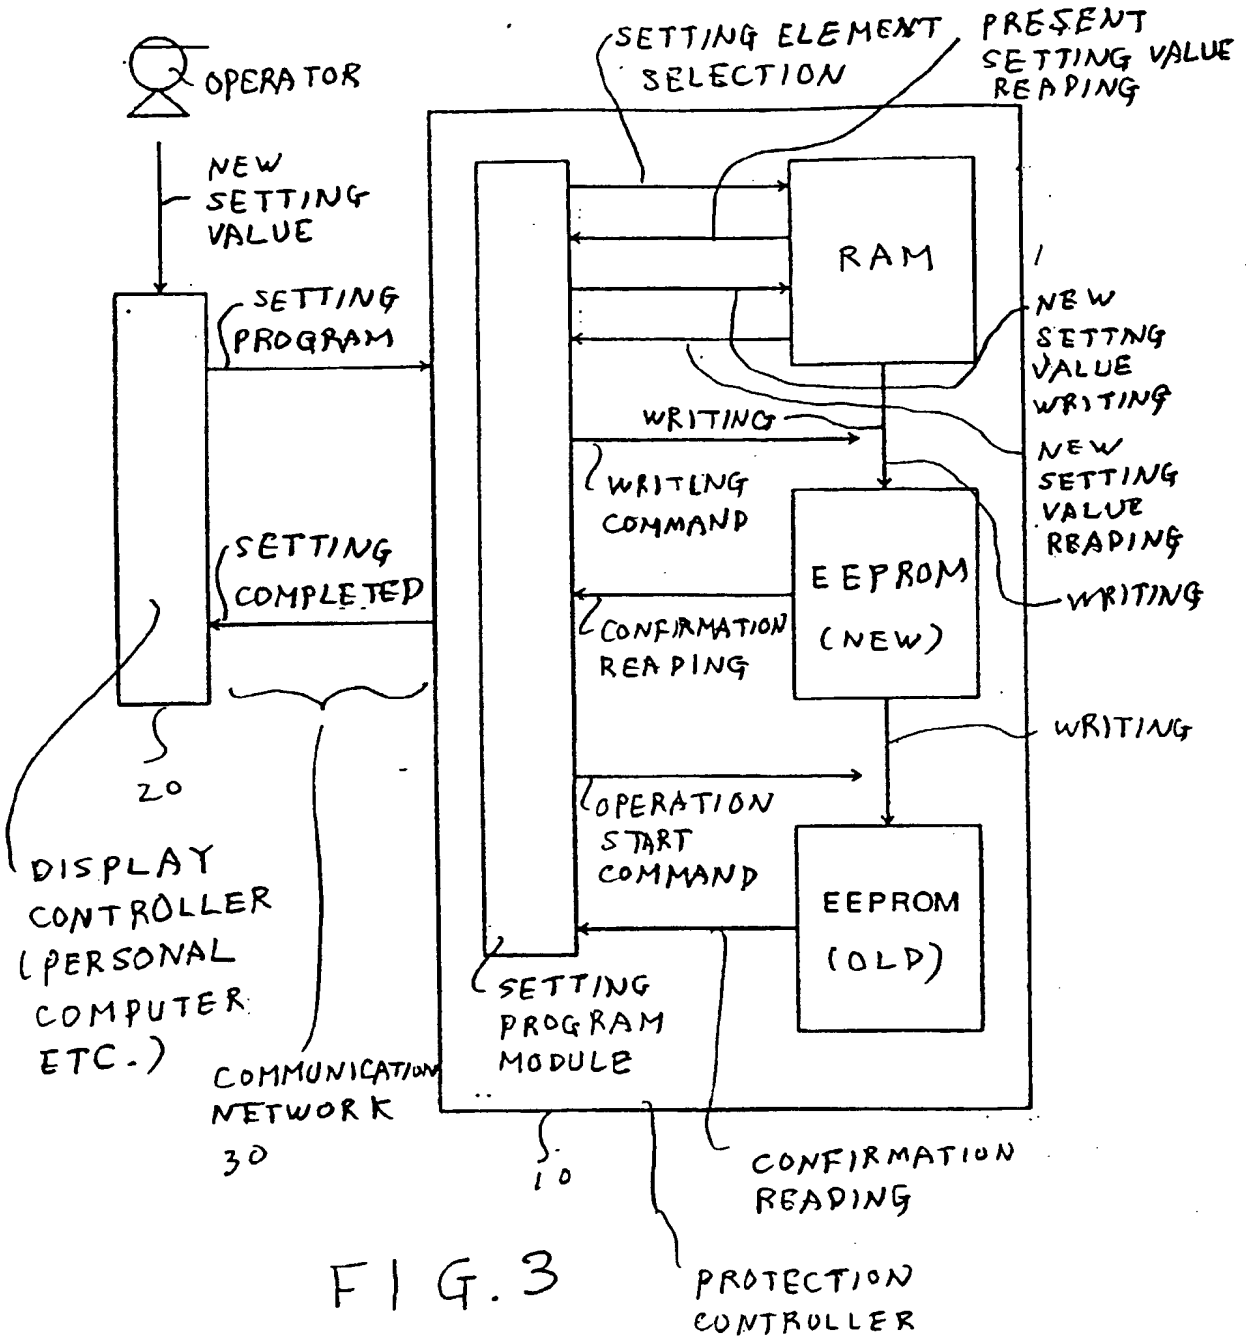 OPERATOR
NEW
SETTING
VALUE
SETTING
PROGRAM
SETTING
COMPLETED
20
DISPLAY
CONTROLLER
(PERSONAL
COMPUTER
ETC.)
COMMUNICATION
NETWORK
30
SETTING ELEMENT
SELECTION
PRESENT
SETTING VALUE
READING
RAM
NEW
SETTNG
VALUE
WRITING
WRITING
WRITENG
COMMAND
NEW
SETTING
VALUE
READING
EEPROM
(NEW)
WRITING
CONFIRMATION
READING
WRITING
OPERATION
START
COMMAND
EEPROM
(OLD)
SETTING
PROGRAM
MODULE
10
CONFIRMATION
READING
PROTECTION
CONTROLLER
FIG.3